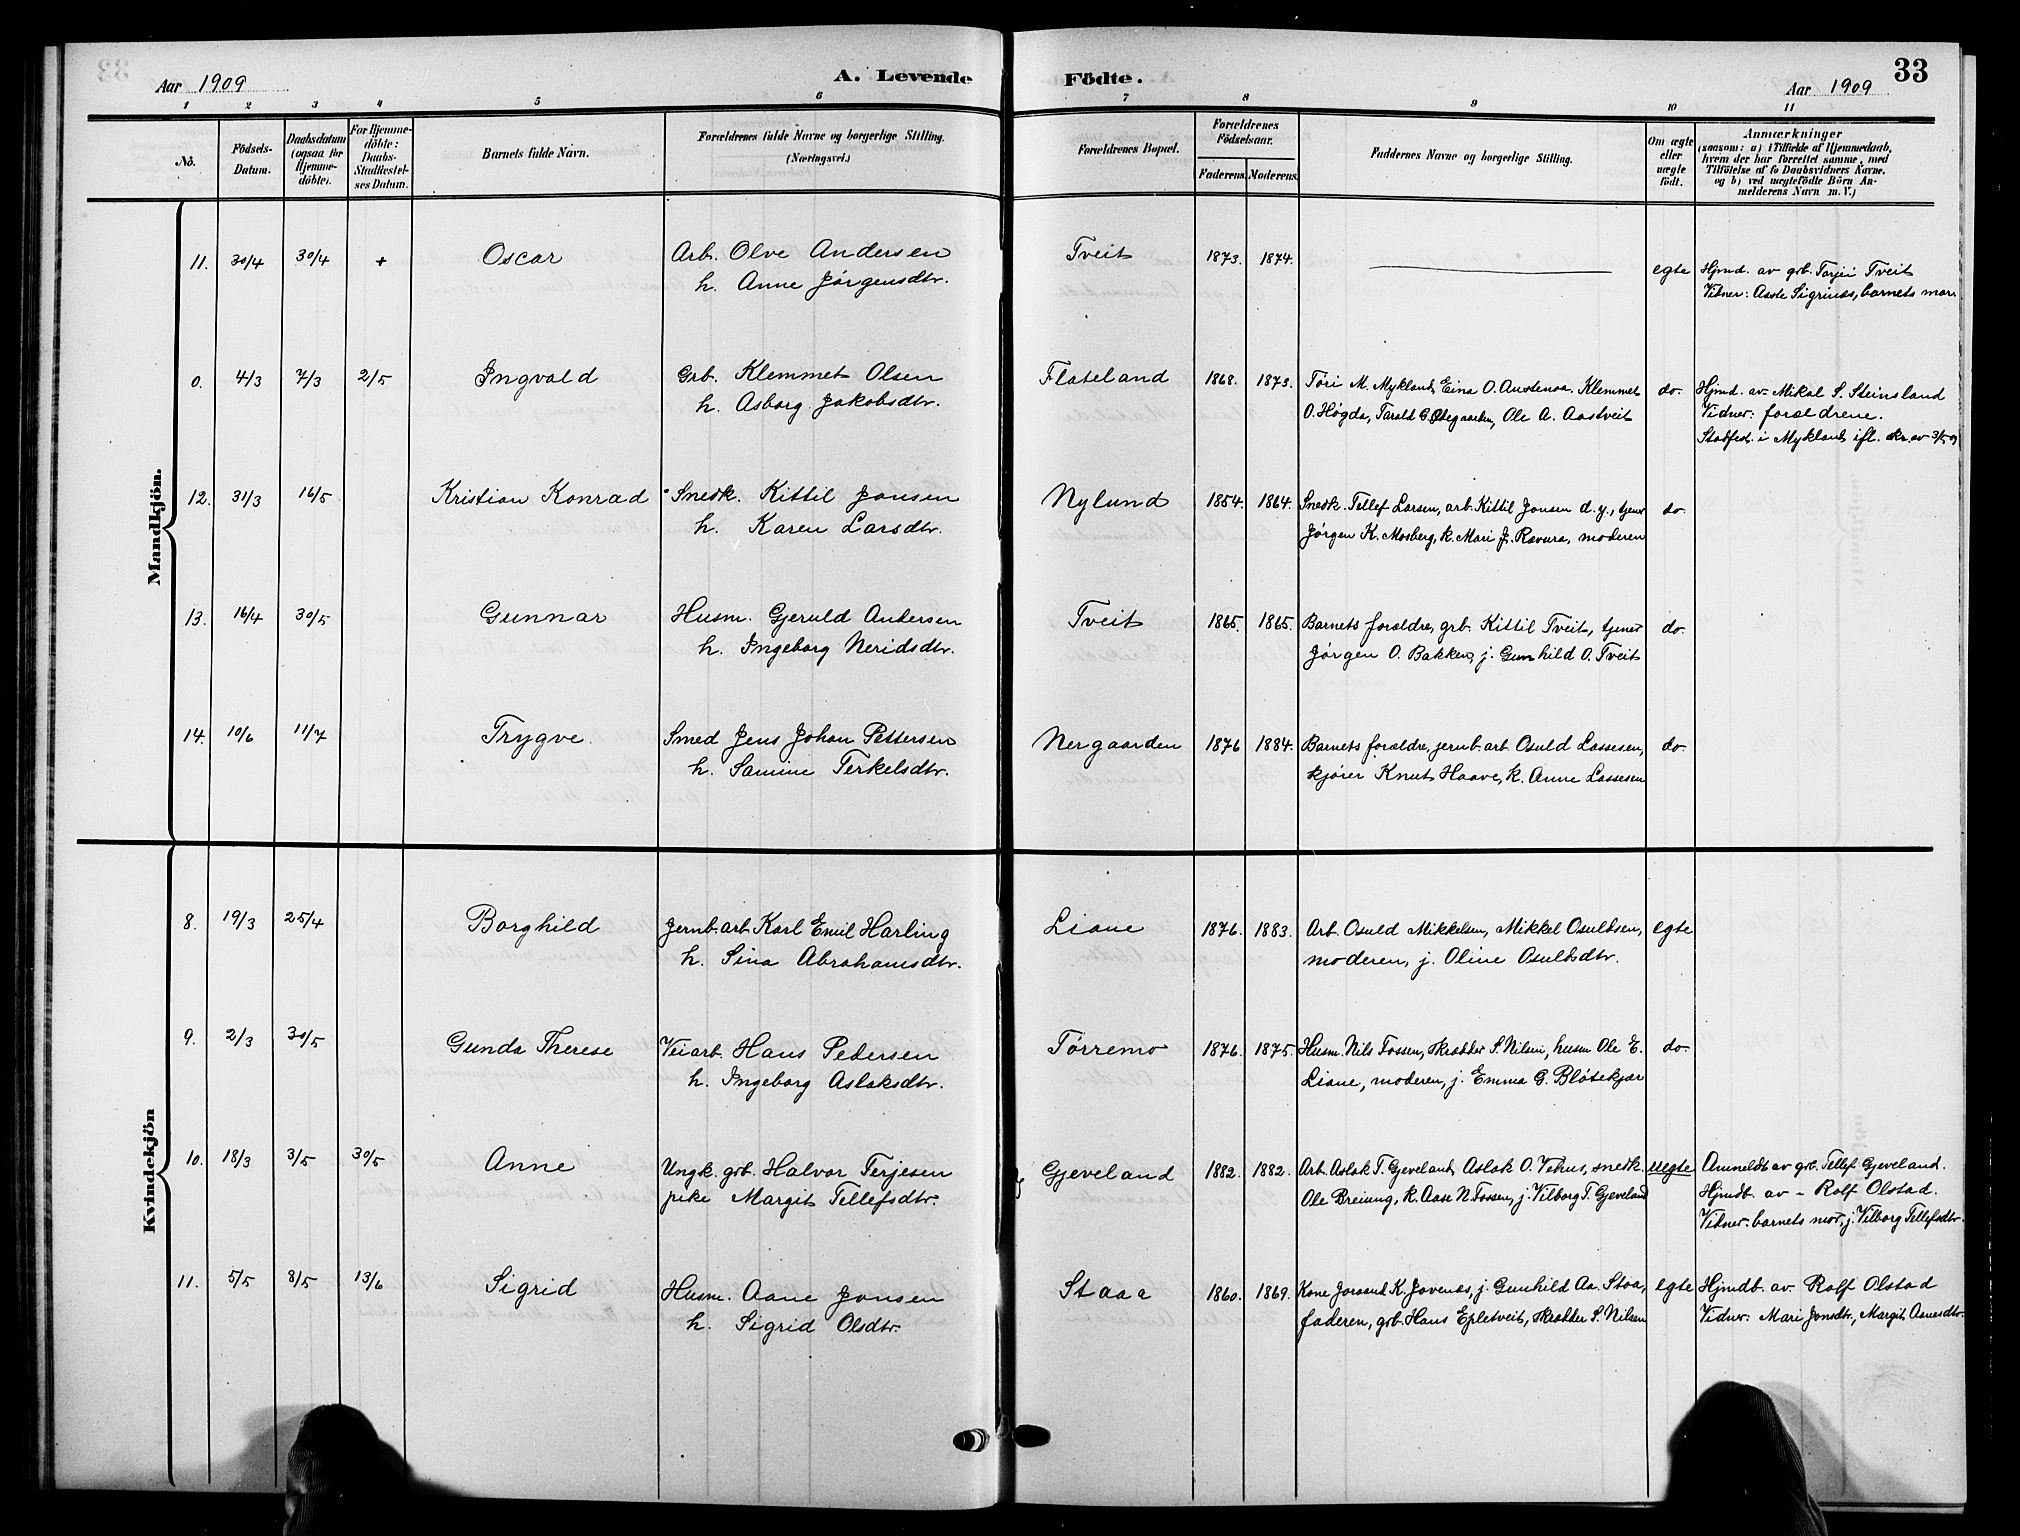 Aar 1909 A. Levende Födte. Aar 1909 33
1 2 3 4 5 6 7 8 9 10 11
No. Födsels-Datum. Daabsdatum (ogsaa for Hjemme-döbte). For Hjemme-döbte: Daabs-Stadfæstel-ses Datum. Barnets fulde Navn. Forældrenes fulde Navne og borgerlige Stilling. (Næringsvei.) Forældrenes Bopæl. Forældrenes Födselsaar. Faderens. Moderens. Faddernes Navne og borgerlige Stilling. Om ægte eller uægte födt. Anmærkninger (saasom: a) i Tilfælde af Hjemmedaab, hvem der har forrettet samme, med Tilföielse af to Daabsvidners Navne, og b) ved uægtefödte Börn An-melderens Navn m. V.)
Mandkjön.
11. 30/4 30/4 + Oscar Arb. Olve Andersen Tveit 1873. 1874. egte Hjmd. av grb. Torjei Tveit
h. Anne Jørgensdtr. Vidner: Aaste Sigrinæs, barnets mor
0. 4/3 7/3 2/5 Ingvald Grb. Klemmet Olsen Flateland 1868. 1873. Tøri M. Mykland, Eina O. Austenaa, Klemmet do. Hjmd. av Mikal S. Steinsland
h. Asborg Jakobsdtr. O. Høgda, Tarald G. Ødegaarden, Ole A. Aastveit Vidner: forældrene.
Stadfest. i Mykland ifl. skr. av 3/5 09
12. 31/3 16/5 Kristian Konrad Snedk. Kittil Jonsen Nylund 1854. 1864. Snedk. Tellef Larsen, arb. Kittil Jonsen d. y., tjener do.
h. Karen Larsdtr. Jørgen K. Mosberg, k. Mari J. Rævura, moderen
13. 16/4 30/5 Gunnar Husm. Gjeruld Andersen Tveit 1865. 1865. Barnets forældre, grb. Kittil Tveit, tjener do.
h. Ingeborg Neridsdtr. Jørgen O. Bakken, j. Gunhild O. Tveit
14. 10/6 11/7 Trygve. Smed Jens Johan Pettersen Nergaarden 1876 1884. Barnets forældre, jernb. arb. Osuld Lassesen, do.
h. Samine Terkelsdtr. kjører Knut Haave, k. Anne Lassesen
Kvindekjön
8. 19/3 25/4 Borghild Jernb. arb. Karl Emil Harling Liane 1876. 1883. Arb. Osuld Mikkelsen, Mikkel Osuldsen, egte
h. Sina Abrahamsdtr. moderen, j. Oline Osuldsdtr.
9. 2/3 30/5 Gunda Therese Veiarb. Hans Pedersen Tørremo 1876. 1875. Husm. Nils Fossen, skrædder S. Nilsen, husm Ole E. do.
h. Ingeborg Aslaksdtr. Liane, moderen, j. Emma G. Bløtekjær
10. 18/3 3/5 30/5 Anne Ungk. grb. Halvor Terjesen Gjeveland 1882. 1882. Arb. Aslak T. Gjeveland, Aslak O. Vehus, snedk. uegte Anmeldt av grb. Tellef Gjeveland.
pike Margit Tellefsdtr. Ole Breiung, k. Aase N. Fossen, j. Vilborg T. Gjeveland Hjmdb. av – Rolf Olstad.
Vidner: barnets mor, j. Vilborg Tellefsdtr.
11. 5/5 8/5 13/6 Sigrid Husm. Aane Jonsen Staaa 1860. 1869. Kone Joraand K. Jovenæs, j. Gunhild Aa. Stoa, egte Hjmdb. av Rolf Olstad
h. Sigrid Olsdtr. faderen, grb. Hans Epletveit, skrædder S. Nilsen Vidner: Mari Jonsdtr., Margit Aanesdtr.